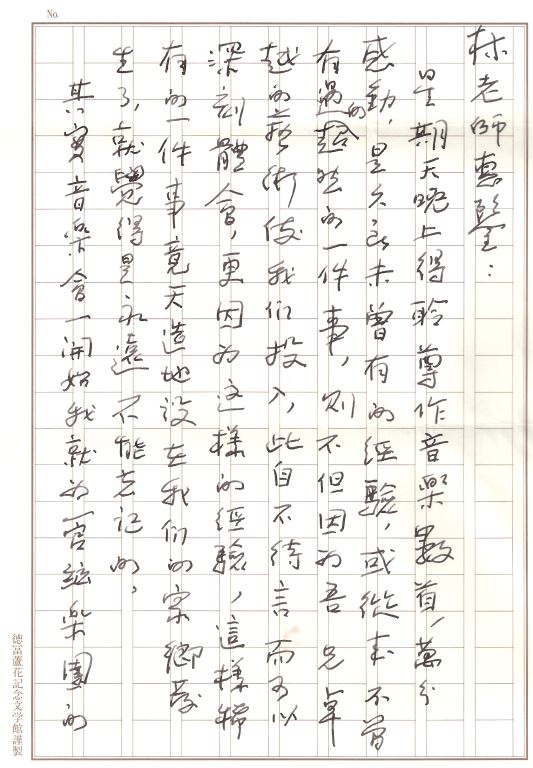 No.
林老師惠鑒：
星期天晚上得聆尊作音樂數首，萬分
感動，是久已未曾有的經驗，或從來不曾
有過的超然的一件事，則不但因為吾兄卓
越的藝術使我们投入，此自不待言而可以
深刻體會，更因为这樣的經驗，這樣稀
有的一件事竟天造地設在我们的家鄉發
生了，就覺得是永遠不能忘记的，
其實音樂會一開始我就为管絃樂團的
徳冨蘆花記念文学館謹製